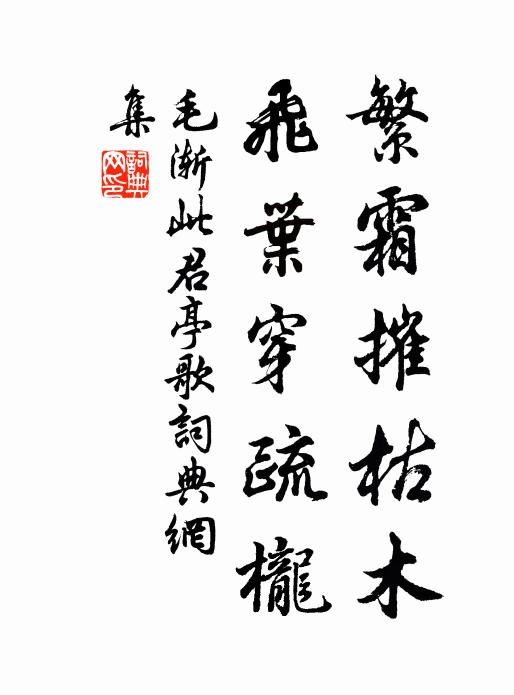 繁霜摧枯木
飛葉穿疏櫳
毛漸此君亭歌詞典網
集
詞典
网印